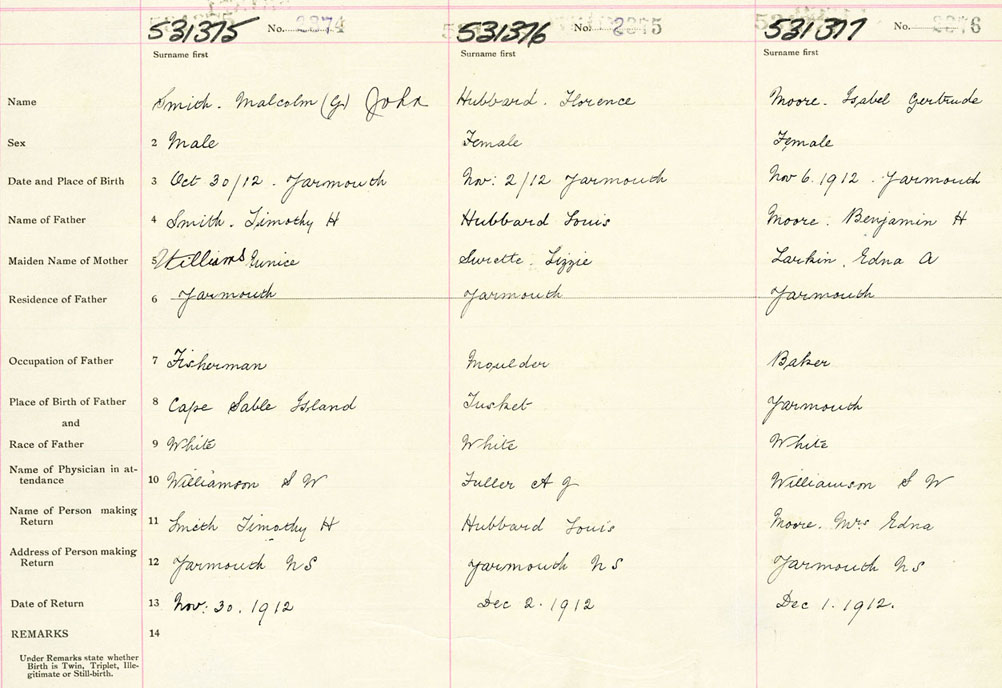 531375 No. 2374 531376 No. 2375 531377 No. 2376
Surname first Surname first Surname first
Name Smith. Malcolm (G) John Hubbard. Florence Moore. Isabel Gertrude
Sex 2 Male Female Female
Date and Place of Birth 3 Oct 30/12. Yarmouth Nov: 2/12 Yarmouth Nov 6. 1912. Yarmouth
Name of Father 4 Smith. Timothy H Hubbard Louis Moore. Benjamin H
Maiden Name of Mother 5 Williams Eunice Surette. Lizzie Larkin. Edna A
Residence of Father 6 Yarmouth Yarmouth Yarmouth
Occupation of Father 7 Fisherman Moulder Baker
Place of Birth of Father 8 Cape Sable Island Tusket Yarmouth
and
Race of Father 9 White White White
Name of Physician in at-
tendance 10 Williamson S W Fuller A J Williamson S W
Name of Person making
Return 11 Smith Timothy H Hubbard Louis Moore. Mrs Edna
Address of Person making
Return 12 Yarmouth NS Yarmouth NS Yarmouth NS
Date of Return 13 Nov: 30. 1912 Dec 2. 1912 Dec 1. 1912.
REMARKS 14
Under Remarks state whether
Birth is Twin, Triplet, Ille-
gitimate or Still-birth.